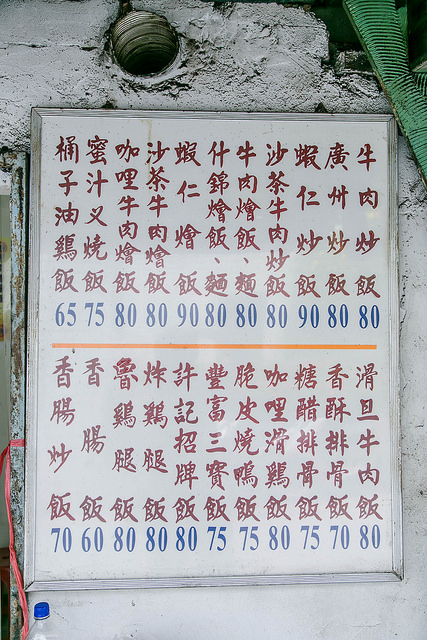 牛肉炒飯 80
廣州炒飯 80
蝦仁炒飯 90
沙茶牛肉炒飯 80
牛肉燴飯、麵 80
什錦燴飯、麵 80
蝦仁燴飯 90
沙茶牛肉燴飯 80
咖哩牛肉燴飯 80
蜜汁叉燒飯 75
桶子油鷄飯 65
滑旦牛肉飯 80
香酥排骨飯 70
糖醋排骨飯 75
咖哩滑鷄飯 80
脆皮燒鴨飯 75
豐富三寶飯 75
許記招牌飯 80
炸鷄腿飯 80
魯鷄腿飯 80
香腸飯 60
香腸炒飯 70